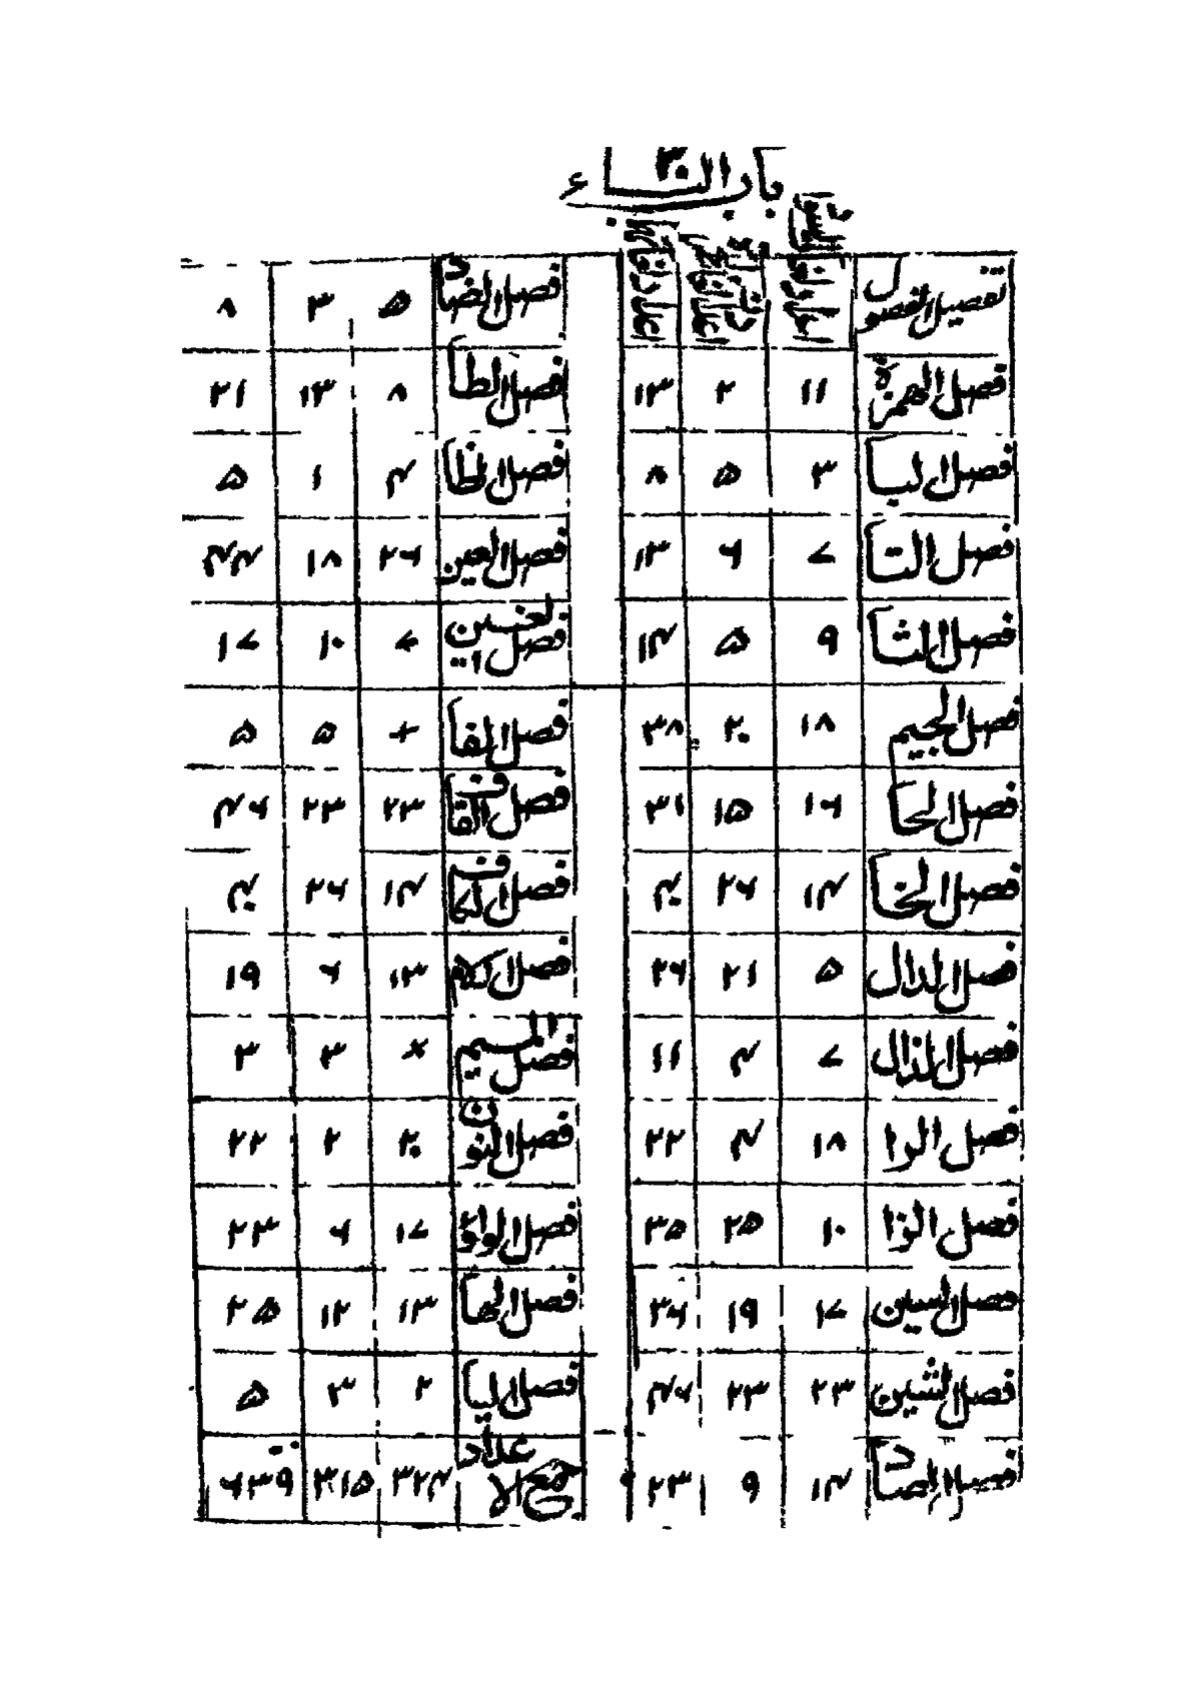 باب التاء
تفصيل الفصول
فصل الهمزة ١١ ٢ ١٣
فصل البا ٣ ٥ ٨
فصل التا ٧ ٦ ١٣
فصل الثا ٩ ٥ ١٤
فصل الجيم ١٨ ٢٠ ٣٨
فصل الحا ١٦ ١٥ ٣١
فصل الخا ١٤ ٢٦ ٤٠
فصل الدال ٥ ٢١ ٢٦
فصل الذال ٧ ٤ ١١
فصل الرا ١٨ ٤ ٢٢
فصل الزا ١٠ ٢٥ ٣٥
فصل السين ١٧ ١٩ ٣٦
فصل الشين ٢٣ ٢٣ ٤٦
فصل الصاد ١٤ ٩ ٢٣
فصل الضاد ٥ ٣ ٨
فصل الطا ٨ ١٣ ٢١
فصل الظا ٤ ١ ٥
فصل العين ٢٦ ١٨ ٤٤
فصل الغين ٧ ١٠ ١٧
فصل الفا + ٥ ٥
فصل القاف ٢٣ ٢٣ ٤٦
فصل الكاف ١٤ ٢٦ ٤٠
فصل اللام ١٣ ٦ ١٩
فصل الميم × ٣ ٣
فصل النون ٢٠ ٢ ٢٢
فصل الواو ١٧ ٦ ٢٣
فصل الها ١٣ ١٢ ٢٥
فصل اليا ٢ ٣ ٥
جمع الاعداد ٣٢٤ ٣١٥ ٦٣٩